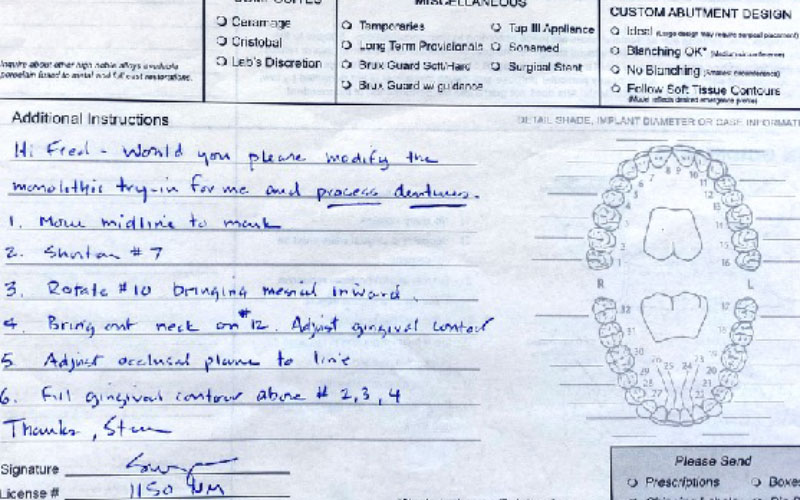 Ceramage
Cristobal
Lab's Discretion
MISCELLANEOUS
Temporaries
Long Term Provisionals
Brux Guard Soft/Hard
Brux Guard w/ guidance
Tap III Appliance
Surgical Stent
CUSTOM ABUTMENT DESIGN
Ideal (Large design may require surgical placement)
Blanching OK*
No Blanching
Follow Soft Tissue Contours
(Model reflects desired emergence profile)
Inquire about other high noble alloys available
porcelain fused to metal and full cast restorations.
Additional Instructions
DETAIL SHADE, IMPLANT DIAMETER OR CASE INFORMATI
Hi Fred - Would you please modify the
monolithic try-in for me and process dentures.
1. Move midline to mark
2. Shorten #7
3. Rotate #10 bringing mesial inward.
4. Bring out neck on #12. Adjust gingival contour
5. Adjust occlusal plane to line
6. Fill gingival contour above # 2,3,4
Thanks, Steve
7 8 9 10
11
12
3
2
1
14
15
16
R L
32
17
31
18
30
19
29
28
27
26 25 24
22
Signature
License # 1150 NM
Please Send
Prescriptions
Boxes